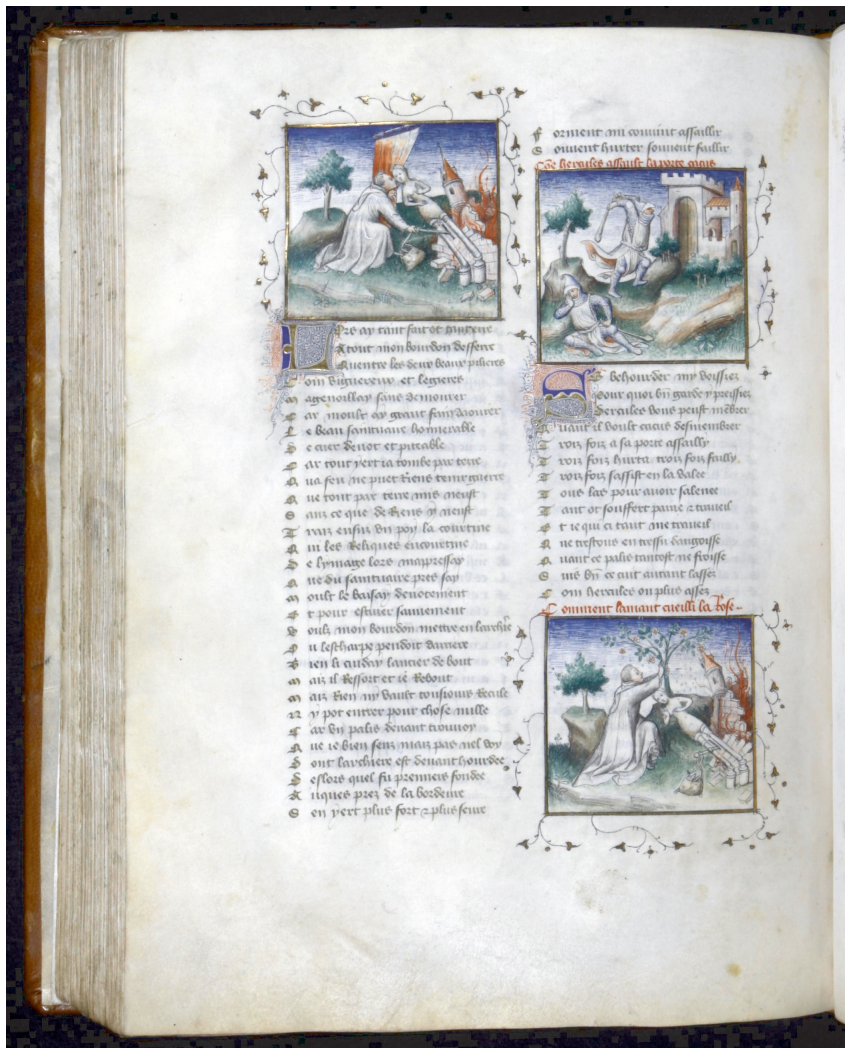 Pres ay tant fait et
A tout mon bourdon desferre
Quentre les deux beaux pilieres
Com viguereux et legieres
magenoillay sans demourer
Car moult oy grant fain daourer
Le beau saintuaire honnerable
De cuer devot et piteable
Car tout yert ia tombe par terre
Qua feu ne puet riens tenir guerre
Que tout par terre mis neust
Sanz ce que de riens y neust
Traiz ensus un poy la courtine
Qui les reliques encourtine
De lymage lors mapressay
Que du saintuaire pres say
moult le baisay devotement
Et pour estuier sainement
Voulz mon bourdon mettre en larchiere
Ou lescharpe pendoit darriere
Bien li cuiday lancier de bout
maiz il ressort et ie rebout
maiz rien ny vault tousiours recule
ny pot entrer pour chose nulle
Car un palis devant trouvoy
Que ie bien sens maiz pas nel voy
Dont larchiere est devant hourdee
Deslors quel fu premiers fondee
Auques prez de la bordeure
Sen yert plus fort et plus seure
Forment mi convint assaillir
Souvent hurter souvent faillir
Coment hercules assault la porte cacus
Se behourder my veissiez
Pour quoi bien garde y preissiez
Dercules vous peust membrer
Quant il voult cacus desmembrer
Troiz foiz a sa porte assailly
Troiz foiz hurta troiz foiz failly
Troiz foiz sassist en la valee
Touz las pour avoir salenee
Tant ot souffert paine et traveil
Et ie qui ci tant me traveil
Que trestous en tressu dangoisse
Quant ce palis tantost ne froisse
Suis bien ce cuit autant lassez
Com hercules ou plus assez
Comment lamant cueilli la Rose